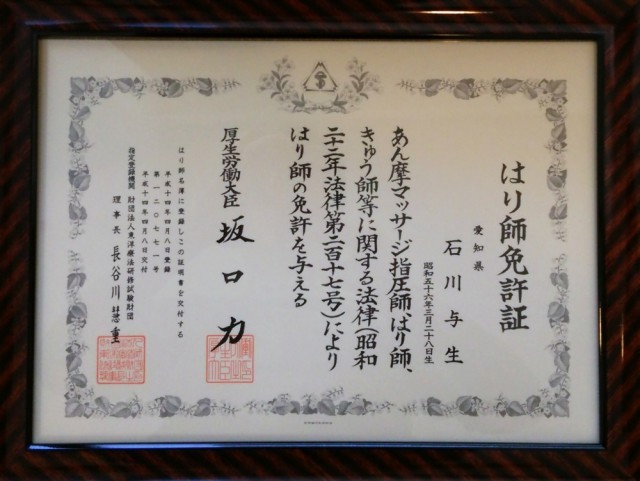 はり師免許証
愛知県
石川与生
昭和五十六年三月二十八日生
あん摩マッサージ指圧師、はり師、
きゅう師等に関する法律(昭和
二十二年法律第二百十七号)により
はり師の免許を与える
厚生労働大臣 坂口力
はり師名簿に登録しこの証明書を交付する
平成十四年四月八日登録
第一二〇七七一号
平成十四年四月八日交付
指定登録機関 財団法人東洋療法研修試験財団
理事長 長谷川慧重